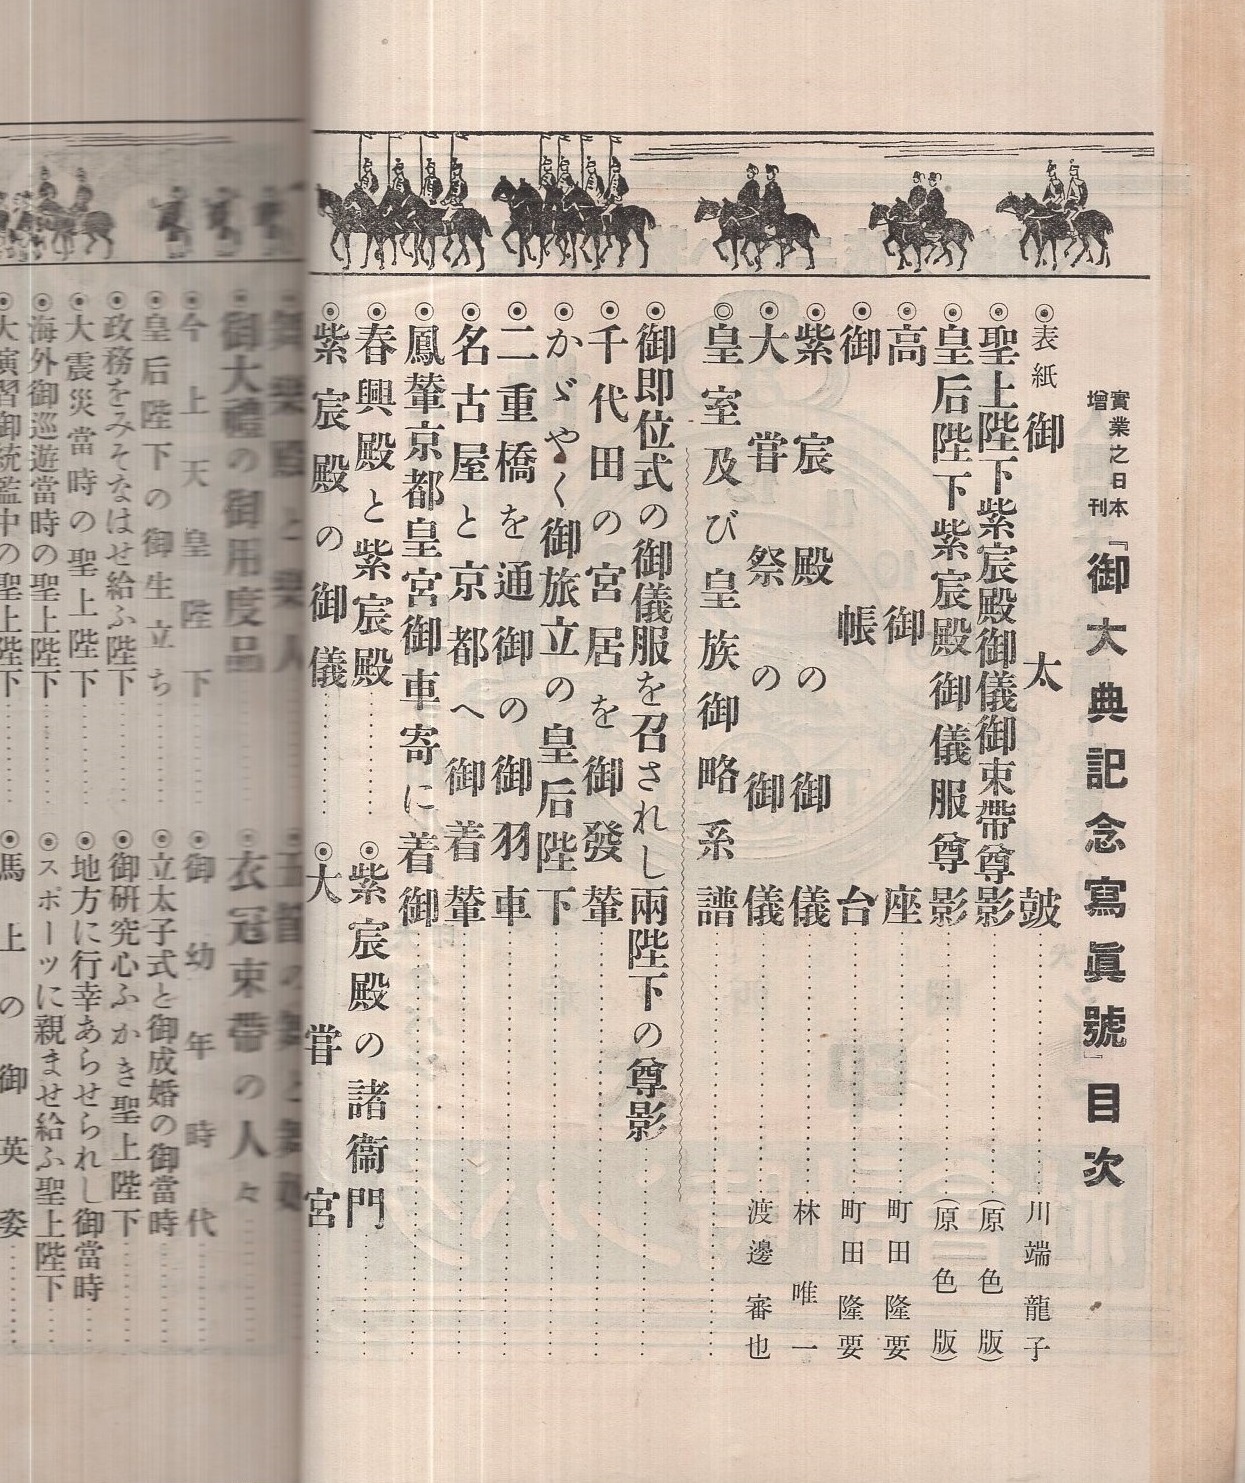 實業之日本
增刊
『御大典記念寫眞號』目次
◉表紙 御太鼓……川端龍子
◉聖上陛下紫宸殿御儀御束帶尊影……(原色版)
◉皇后陛下紫宸殿御儀服尊影……(原色版)
◉高御座……町田隆要
◉御帳台……町田隆要
◉紫宸殿の御儀……林唯一
◉大甞祭の御儀……渡邊審也
◎皇室及び皇族御略系譜……
◉御即位式の御儀服を召されし兩陛下の尊影……
◉千代田の宮居を御發輦……
◉かゞやく御旅立の皇后陛下……
◉二重橋を通御の御羽車……
◉名古屋と京都へ御着輦……
◉鳳輦京都皇宮御車寄に着御……
◉春興殿と紫宸殿……
◉紫宸殿の諸衞門……
◉紫宸殿の御儀……
◉大甞宮……
◉御大禮の御用度品
◉衣冠束帶の人々……
◉今上天皇陛下……
◉御幼年時代……
◉皇后陛下の御生立ち……
◉立太子式と御成婚の御當時
◉政務をみそなはせ給ふ陛下……
◉御研究心ふかき聖上陛下……
◉大震災當時の聖上陛下……
◉地方に行幸あらせられし御當時……
◉海外御巡遊當時の聖上陛下……
◉スポーツに親ませ給ふ聖上陛下……
◉大演習御統監中の聖上陛下……
◉馬上の御英姿……